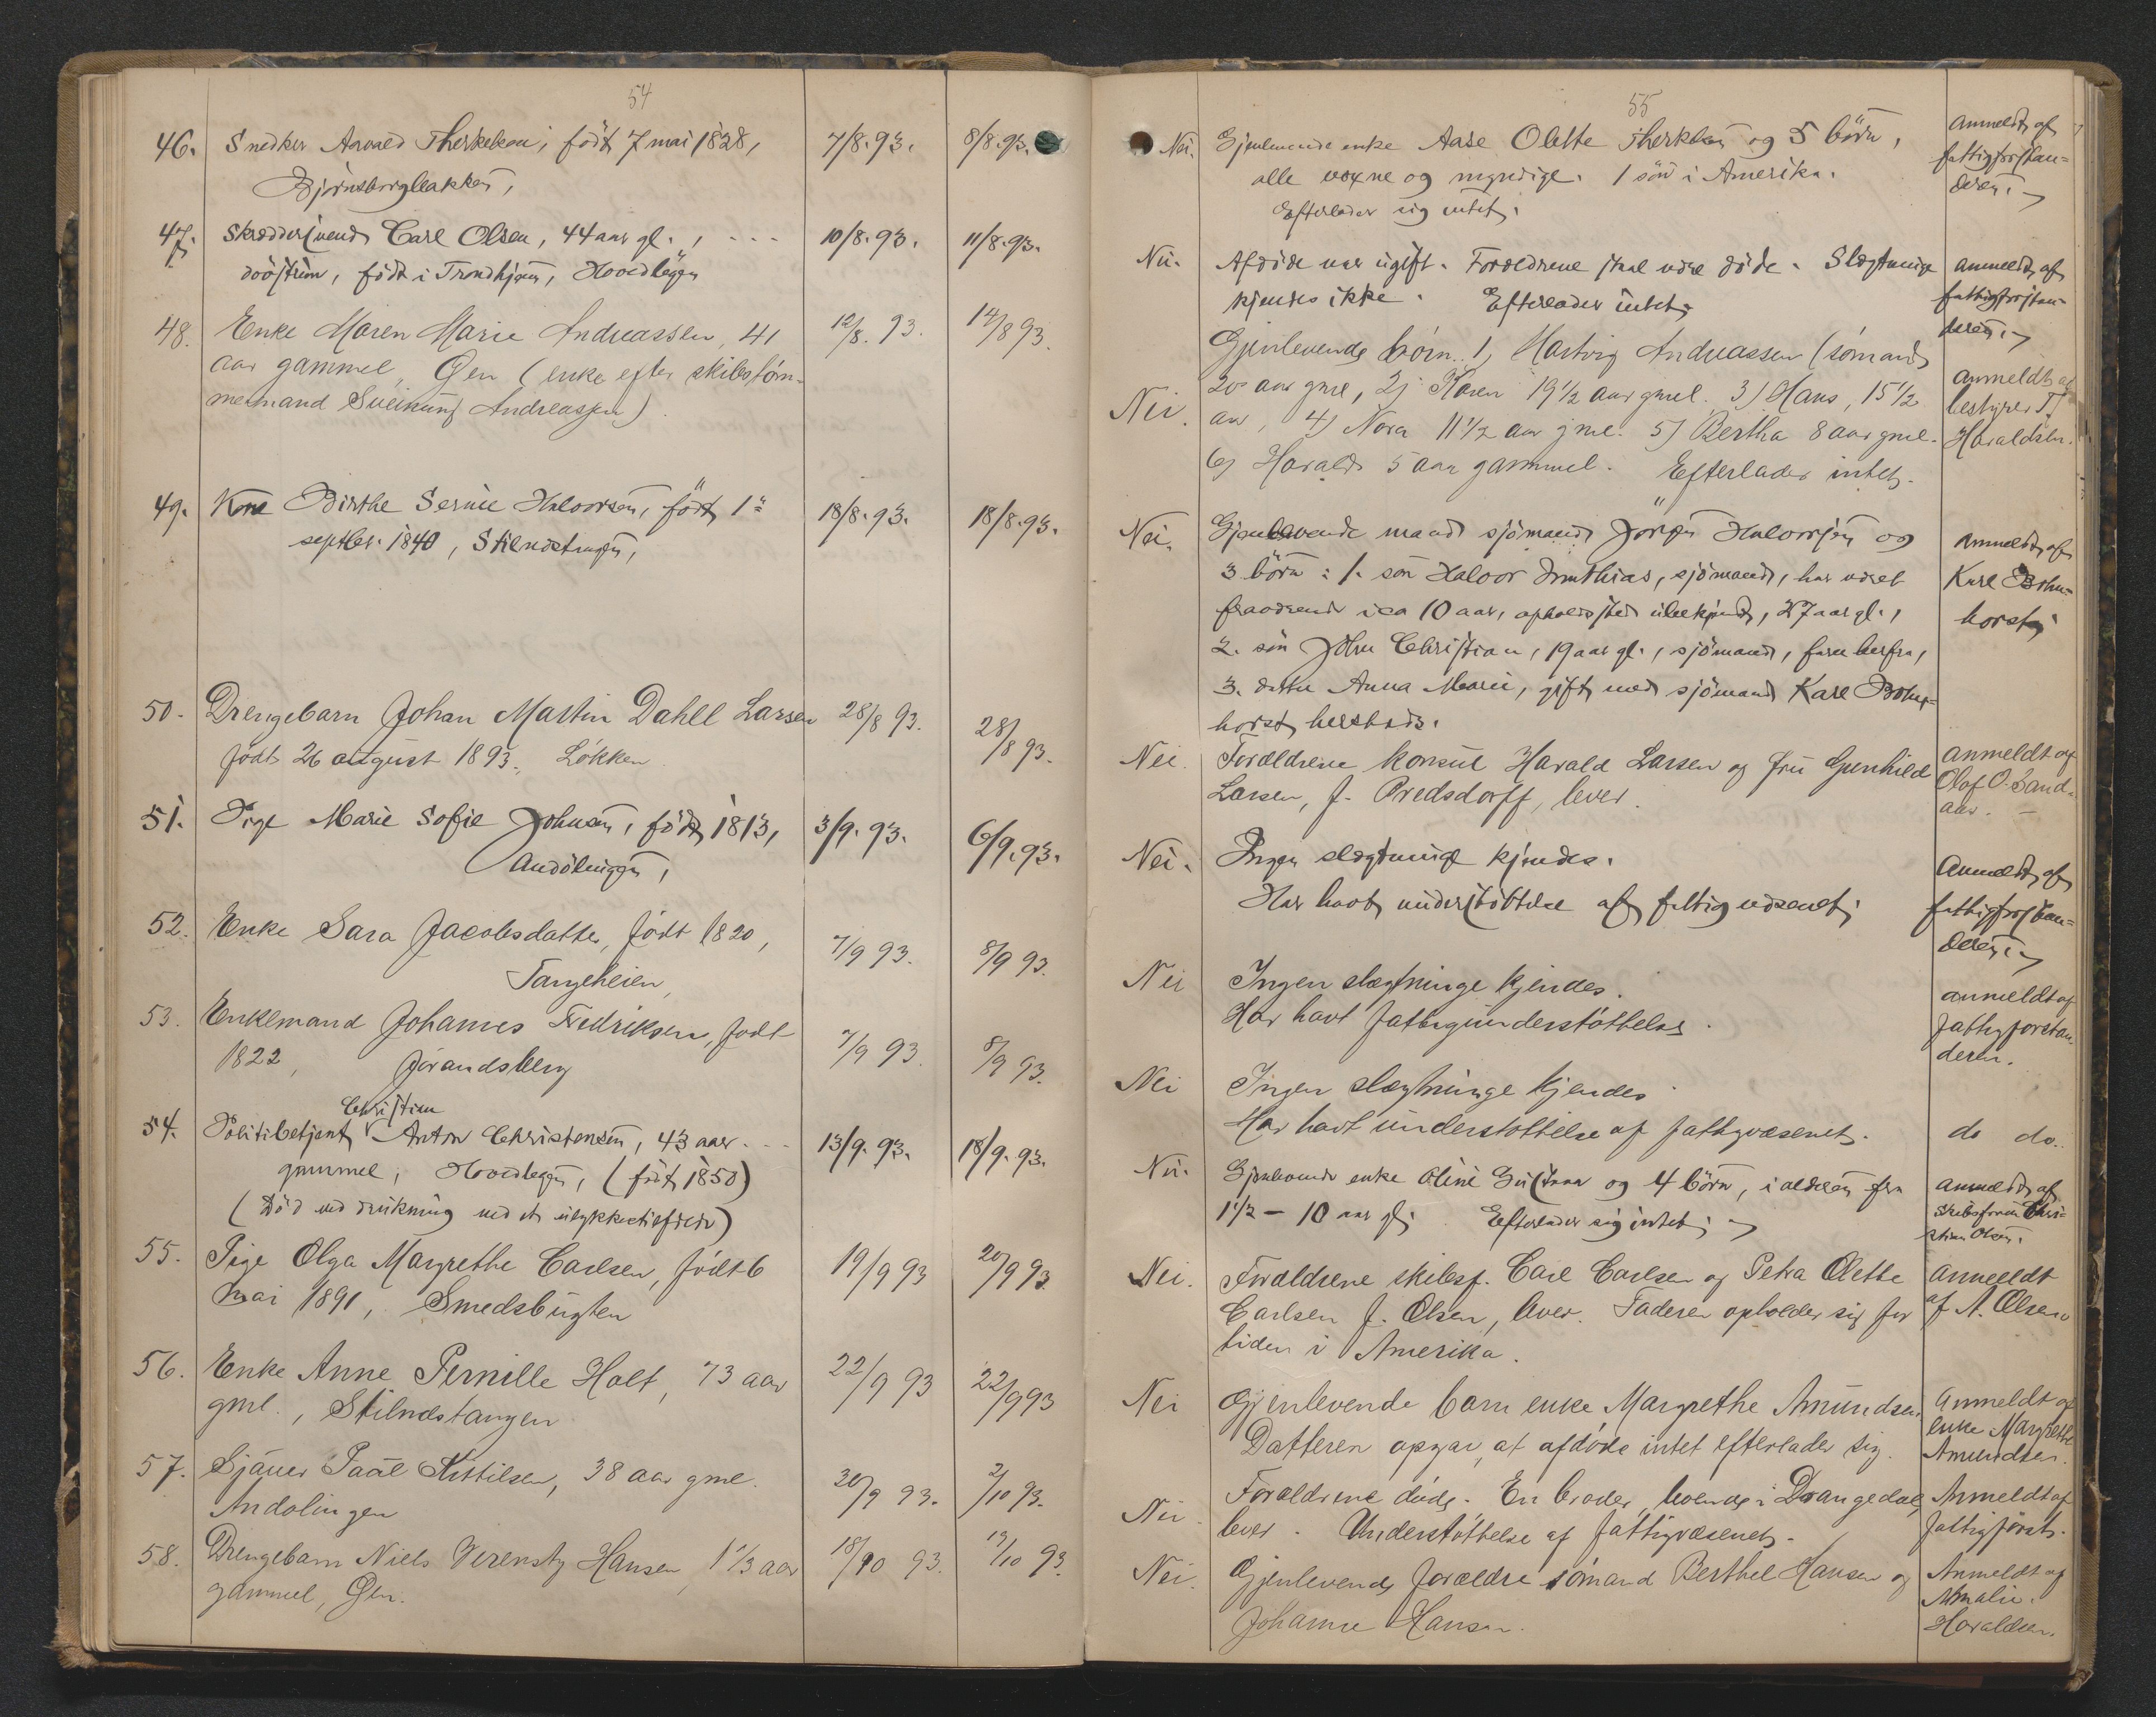 54
46. Snedker Aavald Therkelsen, født 7 mai 1828, 7/8.93. 8/8.93.
Bjørnsborgbakken,
47. Skræddersvend Carl Olsen, 44 aar gl., 10/8.93. 11/8.93.
født i Trondhjem, Hovedleggen
48. Enke Maren Marie Andreassen, 41 12/8.93. 14/8 93.
aar gammel, Øen (enke efter skibstøm-
mermand Andreassen).
49. Kone Birthe Serine Halvorsen, født 1ste 18/8.93. 18/8.93.
septbr. 1840, Stilnestangen,
50. Drengebarn Johan Martin Dahll Larsen 28/8 93. 28/8 93.
født 26 august 1893. Løkken
51. Pige Marie Sofie Johnsen, født 1813, 3/9.93. 6/9.93.
Andølingen,
52. Enke Sara Jacobsdatter, født 1820, 7/9 93. 8/9 93.
Tangeheien,
53. Enkemand Johannes Fredriksen, født 7/9 93 8/9 93.
1822, Jørandsberg
Christian
54. Politibetjent Anton Christensen, 43 aar 13/9.93. 18/9.93.
gammel, Hovedleggen, (født 1850)
(Død ved drukning ved et ulykkestilfælde)
55. Pige Olga Margrethe Carlsen, født 6 19/9 93 20/9 93.
Mai 1891, Smedsbugten
56. Enke Anne Pernille Holt, 73 aar 22/9 93 22/9 93
gml., Stilnestangen
57. Sjauer Paal Kittilsen, 38 aar gml. 30/9 93. 2/10 93.
Andølingen
58. Drengebarn Niels Hansen, 1 1/3 aar 18/10 93. 19/10 93.
gammel, Øen.
55
Nei. Gjenlevende enke Aase Olette Therkelsen og 5 børn, anmeldt af
alle voxne og myndige. 1 søn i Amerika. fattigforstan-
Efterlader sig intet. deren.
Nei. Afdøde var ugift. Forældrene skal være døde. Slægtninge anmeldt af
kjendes ikke. Efterlader intet. fattigforstan-
deren.
Gjenlevende børn. 1, Hartvig Andreassen (sømand)
20 aar gml, 2) Karen 19 1/2 aar gml. 3) Hans, 15 1/2 anmeldt af
Nei. aar, 4) Nora 11 1/2 aar gml. 5) Bertha 8 aar gml. bestyrer T.
6) Harald 5 aar gammel. Efterlader intet. Haraldsen.
Nei. Gjenlevende mand sjømand Jørgen Halvorsen og anmeldt af
3 børn: 1. søn Halvor Mathias, sjømand, har været Karl Bohm-
fraværende i ca 10 aar, opholdssted ubekjendt, 27 aar gl., horst
2. søn John Christian, 19 aar gl., sjømand, farer herfra,
3. datter Anna Marie, gift med sjømand Karl Bohm-
horst hersteds.
Nei. Forældrene konsul Harald Larsen og fru Gunhild anmeldt af
Larsen, f. Predsdorff, lever. Olaf O. Sand-
aas.
Nei. Ingen slægtninge kjendes. Anmeldt af
Har havt understøttelse af fattigvæsenet. fattigforstan-
deren.
Nei Ingen slægtninge kjendes. anmeldt af
Har havt fattigunderstøttelse. fattigforstan-
deren.
Nei Ingen slægtninge kjendes
Har havt understøttelse af fattigvæsenet. do do.
Nei. Gjenlevende enke Oline Gustava og 4 børn, i alderen fra anmeldt af
1 1/2 – 10 aar gl. Efterlader sig intet. Chri-
stian Olsen.
Nei. Forældrene skibsf. Carl Carlsen og Petra Olette Anmeldt
Carlsen f. Olsen, lever. Faderen opholder sig for af A. Olsen
tiden i Amerika.
Nei Gjenlevende barn enke Margrethe Amundsen. Anmeldt af
Datteren opgav, at afdøde intet efterlader sig. enke Margrethe
Amundsen.
Forældrene døde. En broder, boende i Drangedal, Anmeldt af
Nei. lever. Understøttelse af fattigvæsenet. fattigforst.
Nei. Gjenlevende forældre sømand Berthel Hansen og Anmeldt af
Johanne Hansen. Amalie
Haraldsen.